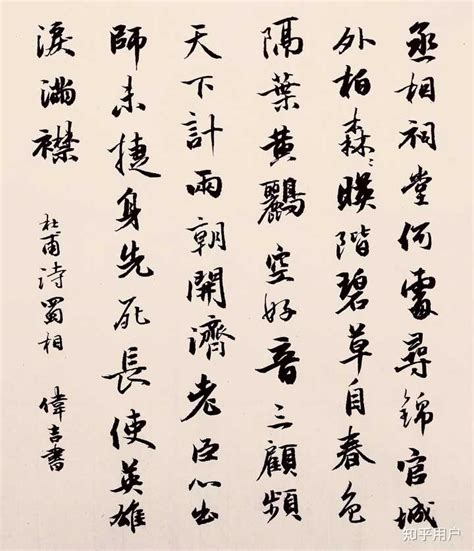 丞相祠堂何處尋錦官城
外柏森〻暎階碧草自春色
隔葉黃鸝空好音三顧頻
天下計兩朝開濟老臣心出
師未捷身先死長使英雄
淚滿襟
杜甫詩蜀相 偉吉書
知乎用户